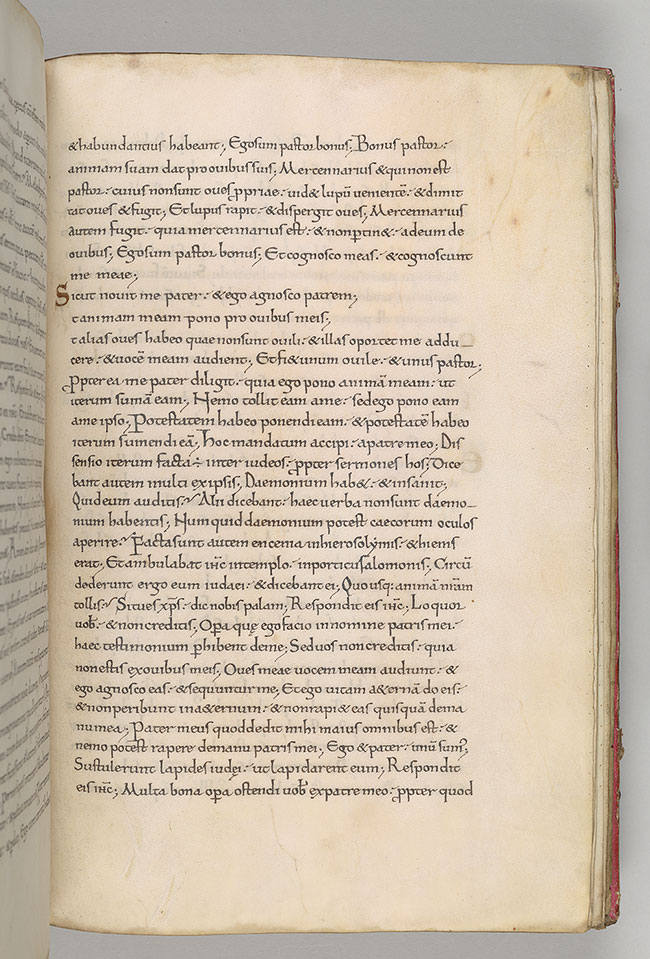 &habundantius habeant; Egosum pastor bonus; Bonus pastor·
animam suam dat pro ouibus suis; Mercennarius & qui non est
pastor· cuius nonsunt oues ppriae· uid& lupū uenientē· & dimit
tat oues & fugit; Et lupus rapit· & dispergit oues; Mercennarius
autem fugit· quia mercennarius est· & nonptin&· adeum de
ouibus; Egosum pastor bonus; Et cognosco meas· & cognoscunt
me meae;
Sicut nouit me pater· & ego agnosco patrem;
t animam meam pono pro ouibus meis;
t alias oues habeo quae nonsunt ouili· & illas oportet me addu
cere· & uocē meam audient; Et fi& unum ouile· & unus pastor;
Ppterea me pater diligit· quia ego pono animā meam· ut
iterum sumā eam; Nemo tollit eam ame· sedego pono eam
ame ipso; Potestatem habeo ponendi eam· & potestatē habeo
iterum sumendi eā; Hoc mandatum accipi· apatre meo; Dis
sensio iterum facta ÷ inter iudeos· ppter sermones hos; Dice
bant autem multi exipsis; Daemonium hab&· & insanit;
Quid eum auditis? Alii dicebant· haec uerba nonsunt daemo
nium habentis; Numquid daemonium potest caecorum oculos
aperire? Facta sunt autem encenia inhierosolymis· & hiems
erat; Et ambulabat ihc intemplo· inporticu salomonis; Circū
dederunt ergo eum iudaei· & dicebant ei; Quousq: animā nram
tollis? Si tu es xps· dic nobis palam; Respondit eis ihc; Loquor
uob· & non creditis; Opa quę ego facio in nomine patris mei·
haec testimonium phibent deme; Sed uos non creditis· quia
nonestis exouibus meis; Oues meae uocem meam audiunt· &
ego agnosco eas· & sequuntur me; Et ego uitam a&ernā do eis·
& non peribunt ina&ernum· & non rapi& eas quisquā dema
nu mea; Pater meus quod dedit mihi maius omnibus est· &
nemo potest rapere demanu patris mei; Ego & pater· unū sum;
Sustulerunt lapides iudęi· ut lapidarent eum; Respondit
eis ihc; Multa bona opa ostendi uob expatre meo· ppter quod